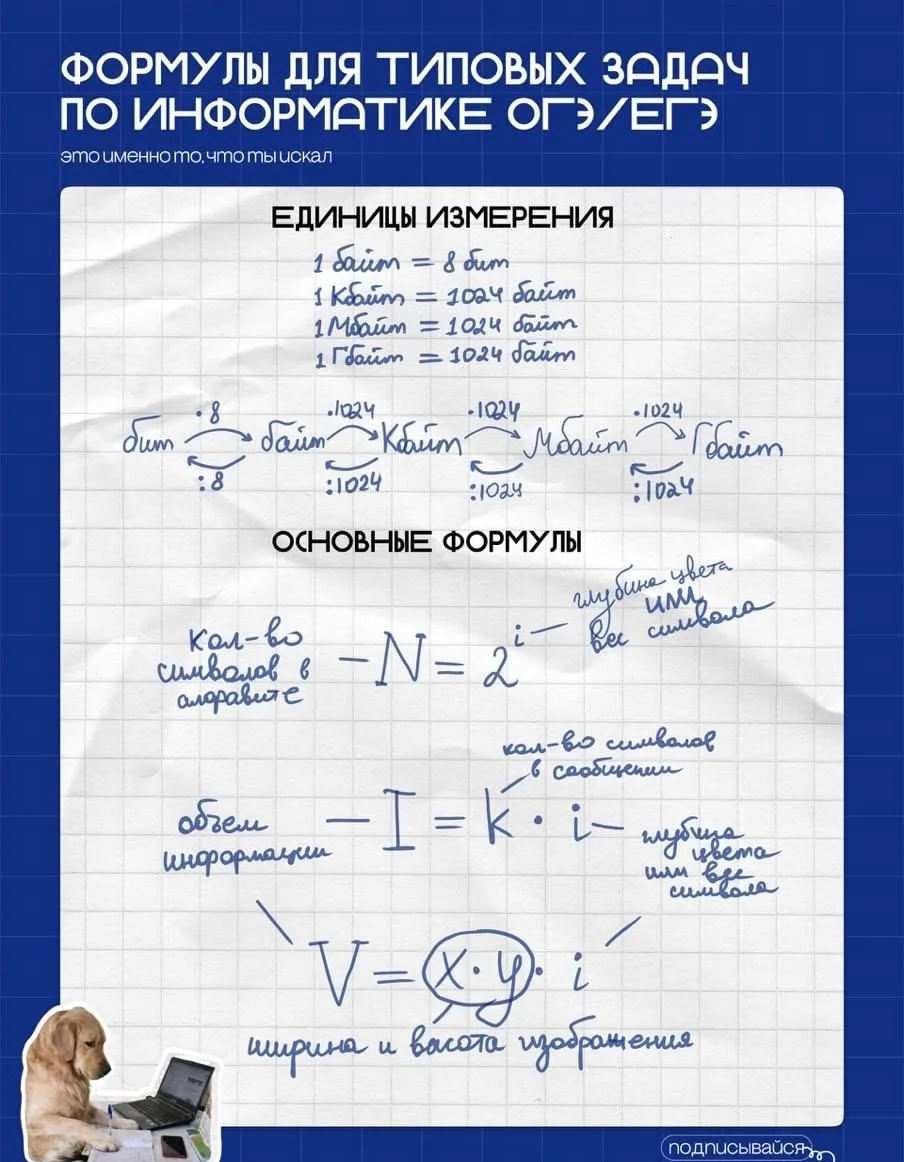 ФОРМУЛЫ ДЛЯ ТИПОВЫХ ЗАДАЧ
ПО ИНФОРМАТИКЕ ОГЭ/ЕГЭ
это именно то, что ты искал
ЕДИНИЦЫ ИЗМЕРЕНИЯ
1 байт = 8 бит
1 Кбайт = 1024 байт
1 Мбайт = 1024 байт
1 Гбайт = 1024 байт
·8 ·1024 ·1024 ·1024
бит байт Кбайт Мбайт Гбайт
:8 :1024 :1024 :1024
ОСНОВНЫЕ ФОРМУЛЫ
глубина цвета
или
вес символа
Кол-во
символов в
алфавите
– N = 2^i –
кол-во символов
в сообщении
объем
информации
– I = k · i –
глубина
цвета
или вес
символа
V = x · y · i
ширина и высота изображения
подписывайся